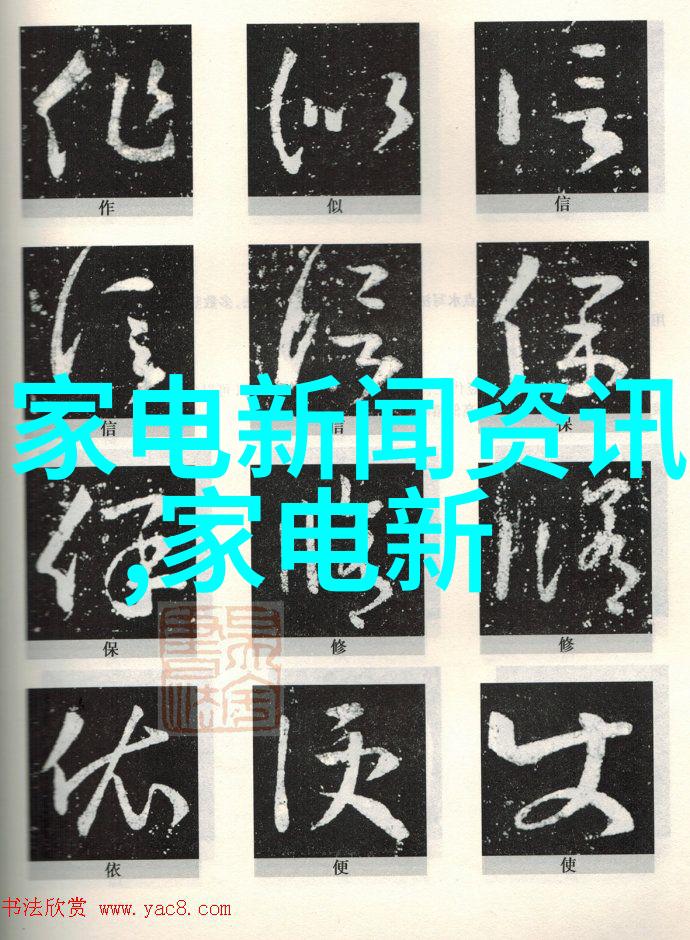 作 似 信
信 信 保
家电新闻资讯
,家电新
保 修 修
依 便 使
书法欣赏 www.yac8.com